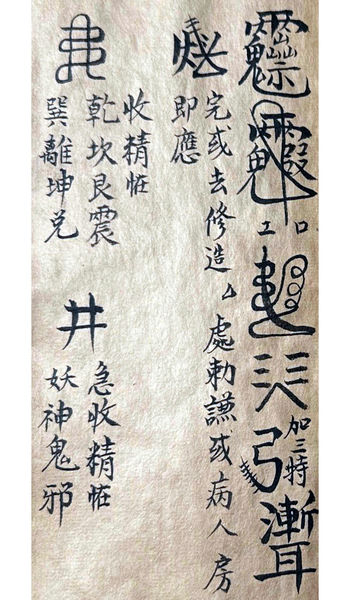 口工
加三特
弓
完或去修造厶處勅謙或病人房
即應
收精怪
乾坎艮震
巽離坤兌
井
急收精怪
妖神鬼邪